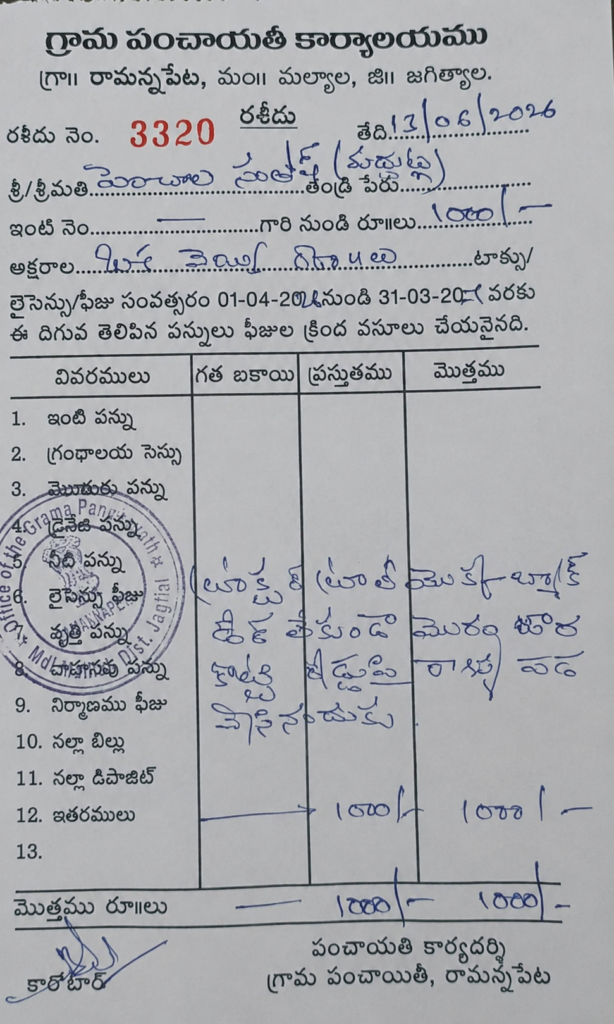 గ్రామ పంచాయతీ కార్యాలయము
గ్రా॥ రామన్నపేట, మం॥ మల్యాల, జి॥ జగిత్యాల.
రశీదు
రశీదు నెం. 3320 తేది. 13/06/2026
శ్రీ/శ్రీమతి పెంచాల తండ్రి పేరు
ఇంటి నెం. — గారి నుండి రూ॥లు 1000/-
అక్షరాల ఒక వెయ్యి రూపాయలు టాక్సు/
లైసెన్సు/ఫీజు సంవత్సరం 01-04-2026 నుండి 31-03-20 వరకు
ఈ దిగువ తెలిపిన పన్నులు ఫీజుల క్రింద వసూలు చేయనైనది.
వివరములు గత బకాయి ప్రస్తుతము మొత్తము
1. ఇంటి పన్ను
2. గ్రంధాలయ సెస్సు
3. మొదురు పన్ను
4. డ్రైనేజి పన్ను
5. నీటి పన్ను
6. లైసెన్సు ఫీజు
వృత్తి పన్ను
8. వాహనపు పన్ను
9. నిర్మాణము ఫీజు
10. నల్లా బిల్లు
11. నల్లా డిపాజిట్
12. ఇతరములు 1000/- 1000/-
13.
ట్రాక్టర్ ట్రాలీ యొక్క బ్యాక్
డోర్ లేకుండా మొరం జార
రోడ్డుపై రాళ్ళు పడ
వేసినందుకు.
Office of the Grama Panchayath
RAMANNAPET
Mdl. Dist. Jagtial
మొత్తము రూ॥లు — 1000/- 1000/-
కారోబార్
పంచాయతి కార్యదర్శి
గ్రామ పంచాయితీ, రామన్నపేట